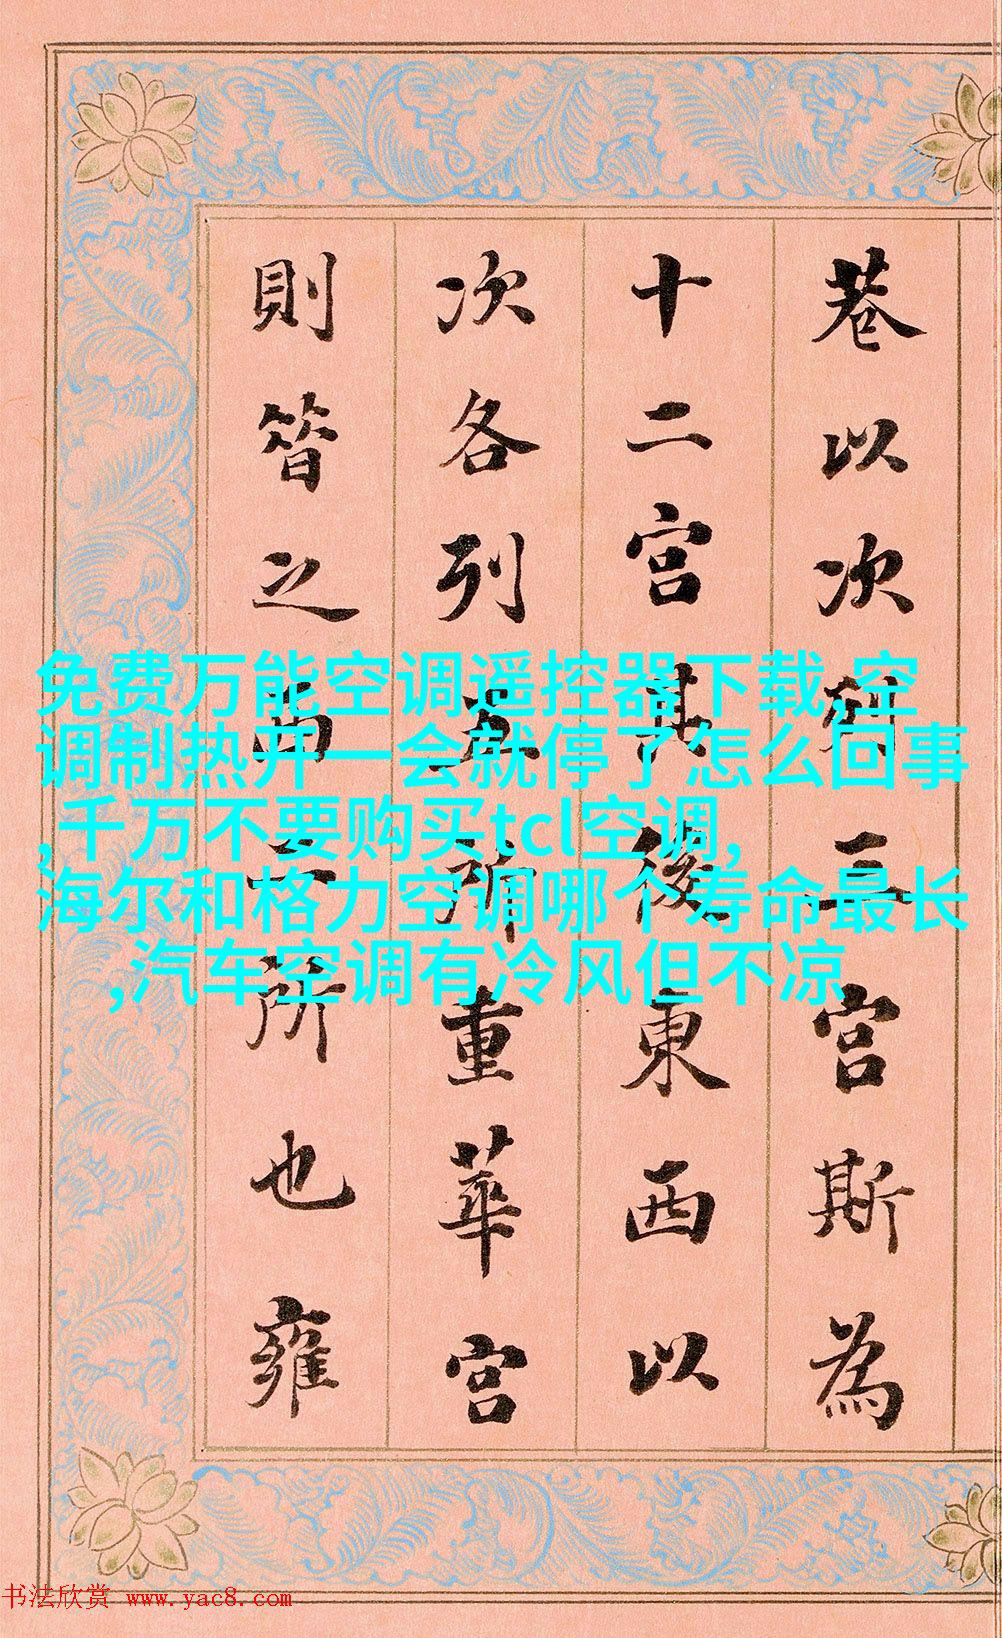 巷以次列三宫斯為
十二宫其後東西以
次各列五所重華宫
則簮之西二所也雍
免费万能空调遥控器下载,空
调制热开一会就停了怎么回事
,千万不要购买tcl空调,
海尔和格力空调哪个寿命最长
,汽车空调有冷风但不凉
书法欣赏 www.yac8.com